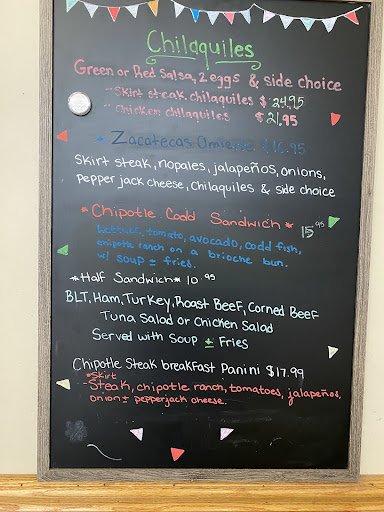 Chilaquiles
Green or Red Salsa, 2 eggs & side choice
Skirt steak chilaquiles $24.95
Chicken chilaquiles $21.95
Zacatecas Omlette $16.95
Skirt steak, nopales, jalapeños, onions,
pepper jack cheese, Chilaquiles & side choice
*Chipotle Codd Sandwich* 15.95
Lettuce, tomato, avocado, codd fish,
chipotle ranch on a brioche bun.
w/ soup ± fries.
*Half Sandwich* 10.95
BLT, Ham, Turkey, Roast Beef, Corned Beef
Tuna Salad or Chicken Salad
Served with Soup ± Fries
Chipotle Steak breakfast Panini $17.99
*Skirt
Steak, chipotle ranch, tomatoes, jalapeños,
onion ± pepperjack cheese.